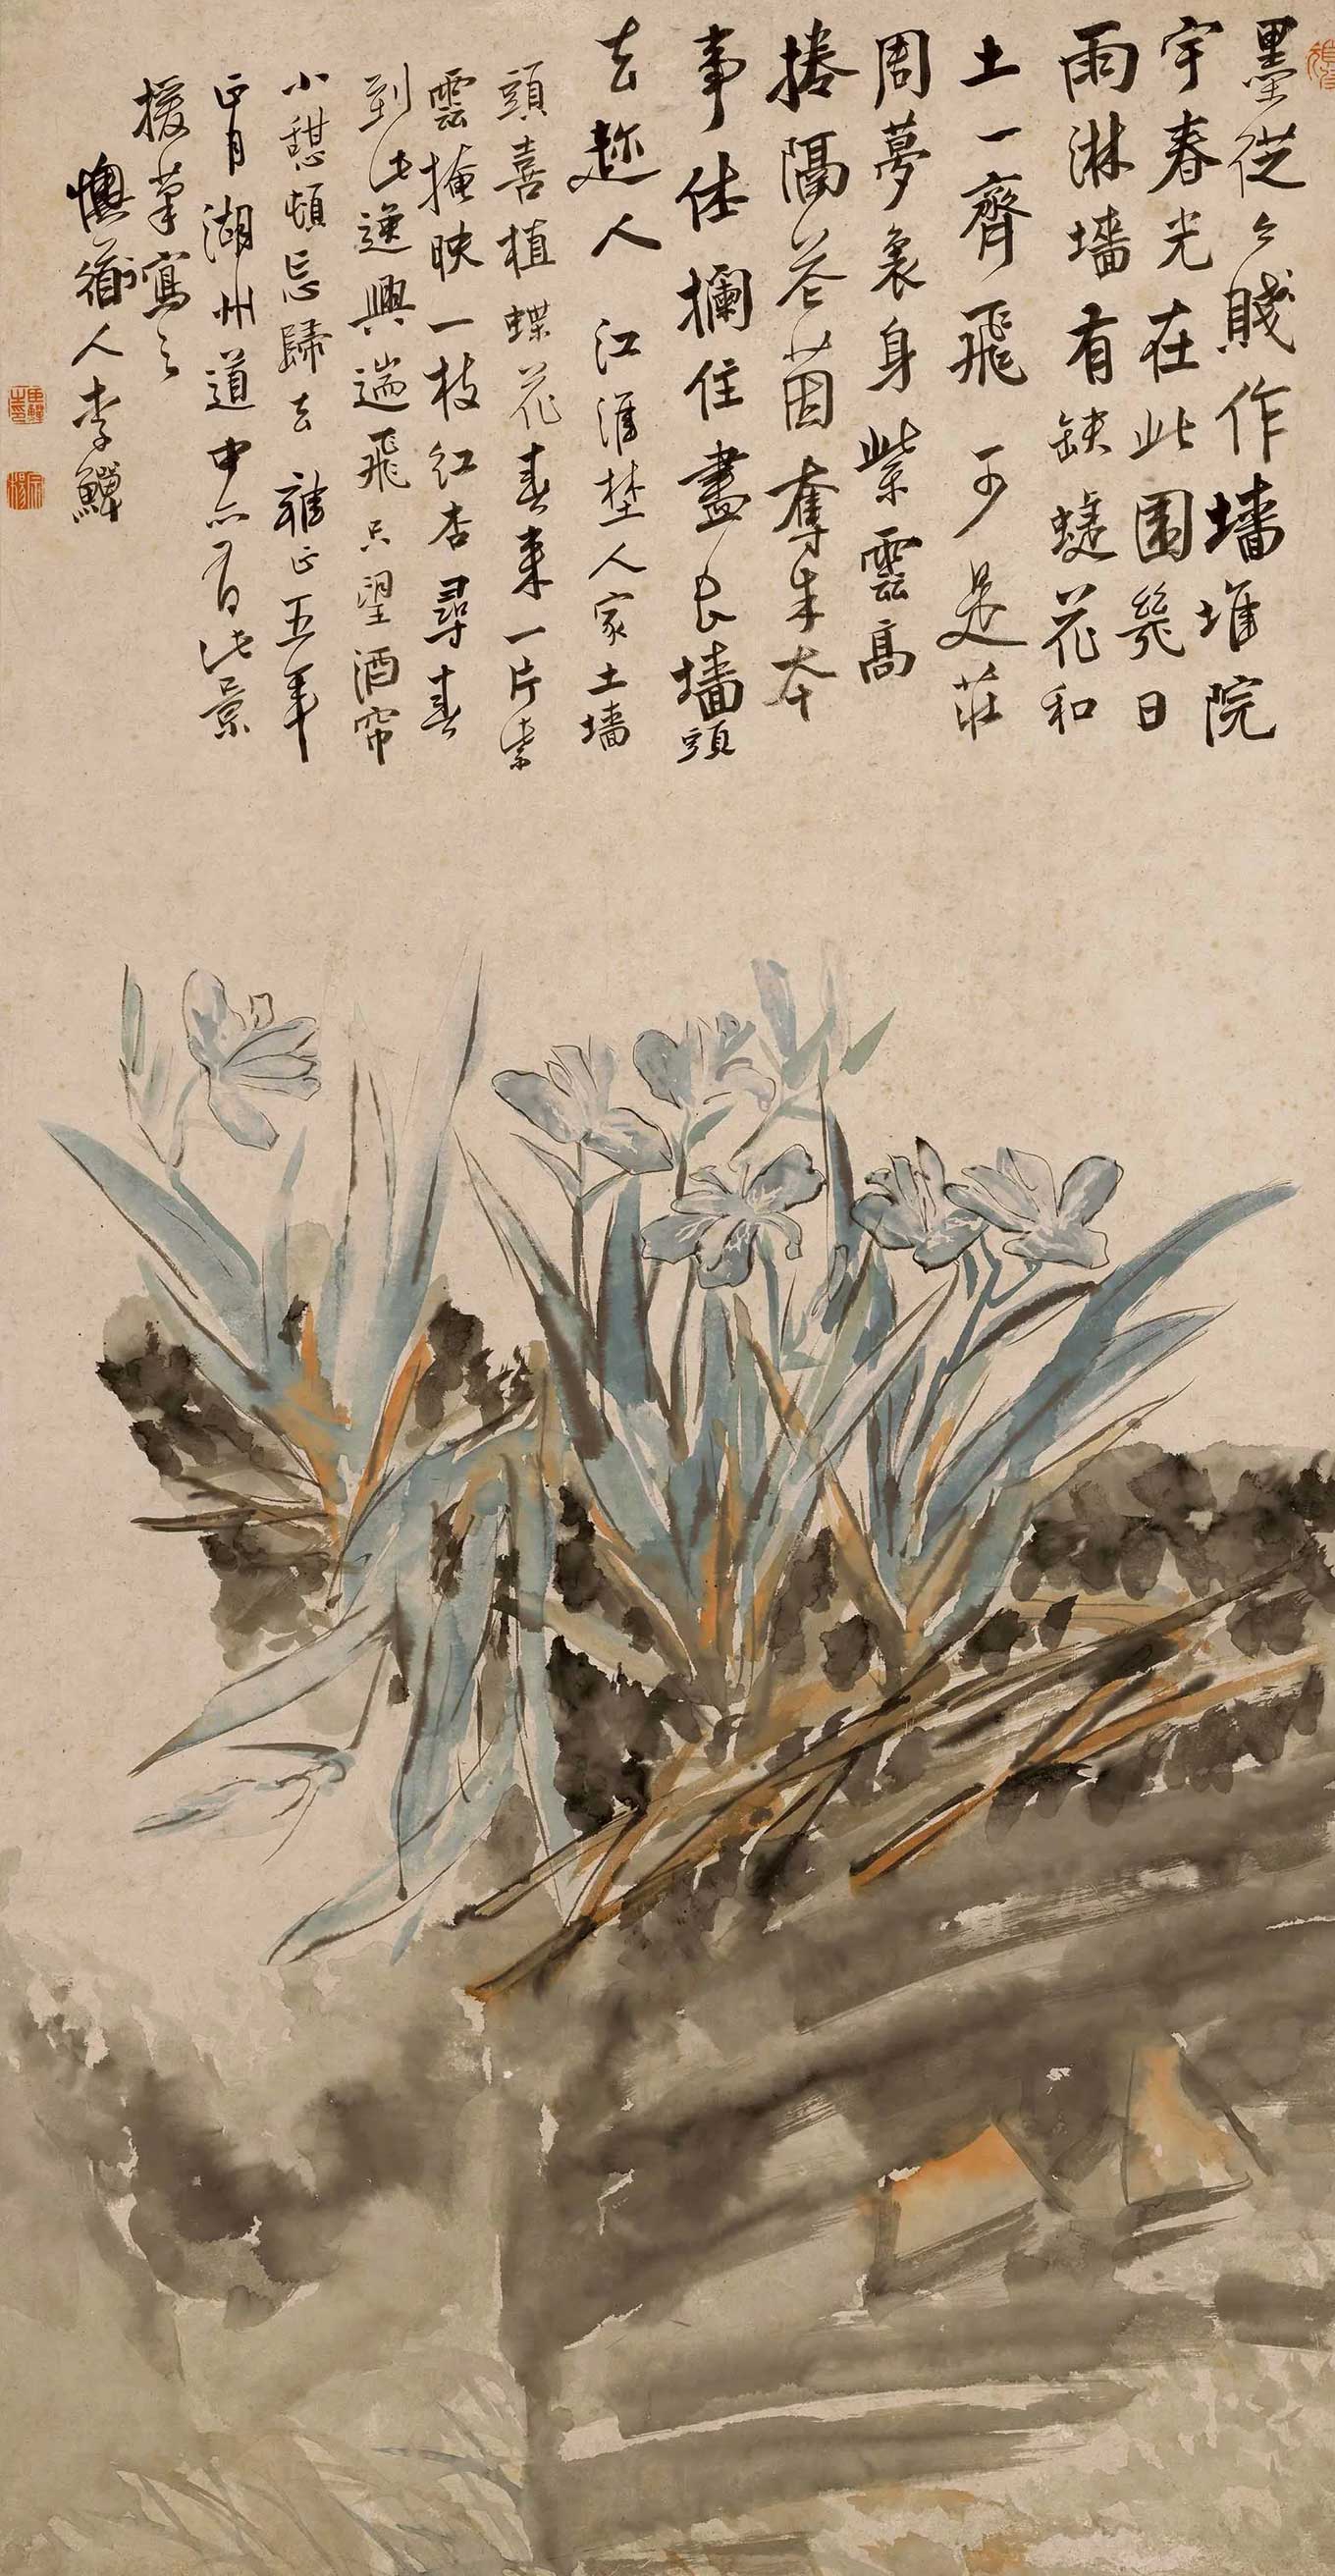 墨從々賤作墙堆院
宇春光在此園幾日
雨淋墙有缺蜨花和
土一齊飛 可是莊
周夢裏身紫雲高
捲隔花茵奪朱本
事休攔住盡長墙頭
去趂人 江淮埜人家土墙
頭喜植蝶花春來一片紫
雲掩映一枝紅杏尋春
到此逸興遄飛只望酒帘
小憇頓忘歸去 雍正五年
正月湖州道中亦有此景
援筆寫之
懊道人李鱓